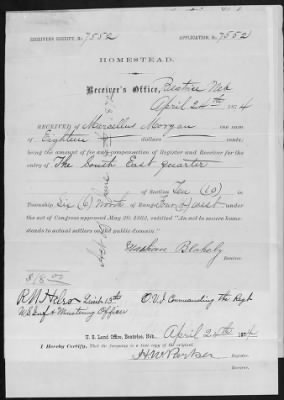 RECEIVERS RECEIPT, No. 7552 APPLICATION, No. 7552
HOMESTEAD.
Receiver's Office, Beatrice Neb
April 24th 1874
RECEIVED OF Marcellus Morgan the sum
of Eighteen dollars cents;
being the amount of fee and compensation of Register and Receiver for the
entry of The South East quarter
of Section Ten (10)
in Township Six (6) North of Range Four (4) West under
the act of Congress approved May 20, 1862, entitled "An act to secure homesteads to actual settlers on the public domain."
Blakely
Receiver.
$18.00
Lieut 15th O.V.I Commanding the Regt
U.S. Inf & Mustering Officer
U. S. Land Office, Beatrice, Neb., April 24th 1874
I Hereby Certify, that the foregoing is a true copy of the original.
H W Parker
Register.
Receiver.